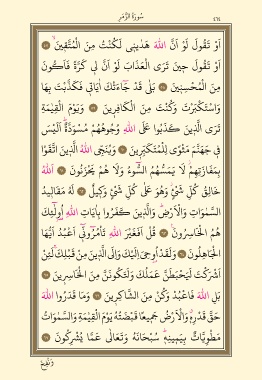 ٤٦٤ سُورَةُ الزُّمَرِ
اَوْ تَقُولَ لَوْ اَنَّ اللهَ هَدٰينِى لَكُنْتُ مِنَ الْمُتَّقِينَۙ ﴿٥٧﴾
اَوْ تَقُولَ حِينَ تَرَى الْعَذَابَ لَوْ اَنَّ لِى كَرَّةً فَاَكُونَ
مِنَ الْمُحْسِنِينَ ﴿٥٨﴾ بَلٰى قَدْ جَٓاءَتْكَ اٰيَاتِى فَكَذَّبْتَ بِهَا
وَاسْتَكْبَرْتَ وَكُنْتَ مِنَ الْكَافِرِينَ ﴿٥٩﴾ وَيَوْمَ الْقِيٰمَةِ
تَرَى الَّذِينَ كَذَبُوا عَلَى اللهِ وُجُوهُهُمْ مُسْوَدَّةٌۜ اَلَيْسَ
فِى جَهَنَّمَ مَثْوًى لِلْمُتَكَبِّرِينَ ﴿٦٠﴾ وَيُنَجِّى اللهُ الَّذِينَ اتَّقَوْا
بِمَفَازَتِهِمْۘ لَا يَمَسُّهُمُ السُّٓوءُ وَلَا هُمْ يَحْزَنُونَ ﴿٦١﴾ اَللهُ
خَالِقُ كُلِّ شَىْءٍۘ وَهُوَ عَلٰى كُلِّ شَىْءٍ وَكِيلٌ ﴿٦٢﴾ لَهُ مَقَالِيدُ
السَّمٰوَاتِ وَالْاَرْضِۜ وَالَّذِينَ كَفَرُوا بِاٰيَاتِ اللهِ اُو۬لٰٓئِكَ
هُمُ الْخَاسِرُونَ۟ ﴿٦٣﴾ قُلْ اَفَغَيْرَ اللهِ تَأْمُرُٓونِّٓى اَعْبُدُ اَيُّهَا
الْجَاهِلُونَ ﴿٦٤﴾ وَلَقَدْ اُو۫حِىَ اِلَيْكَ وَاِلَى الَّذِينَ مِنْ قَبْلِكَۚ لَئِنْ
اَشْرَكْتَ لَيَحْبَطَنَّ عَمَلُكَ وَلَتَكُونَنَّ مِنَ الْخَاسِرِينَ ﴿٦٥﴾
بَلِ اللهَ فَاعْبُدْ وَكُنْ مِنَ الشَّاكِرِينَ ﴿٦٦﴾ وَمَا قَدَرُوا اللهَ
حَقَّ قَدْرِهِۗ وَالْاَرْضُ جَمِيعًا قَبْضَتُهُ يَوْمَ الْقِيٰمَةِ وَالسَّمٰوَاتُ
مَطْوِيَّاتٌ بِيَمِينِهِۜ سُبْحَانَهُ وَتَعَالٰى عَمَّا يُشْرِكُونَ ﴿٦٧﴾
وَنُفِخَ